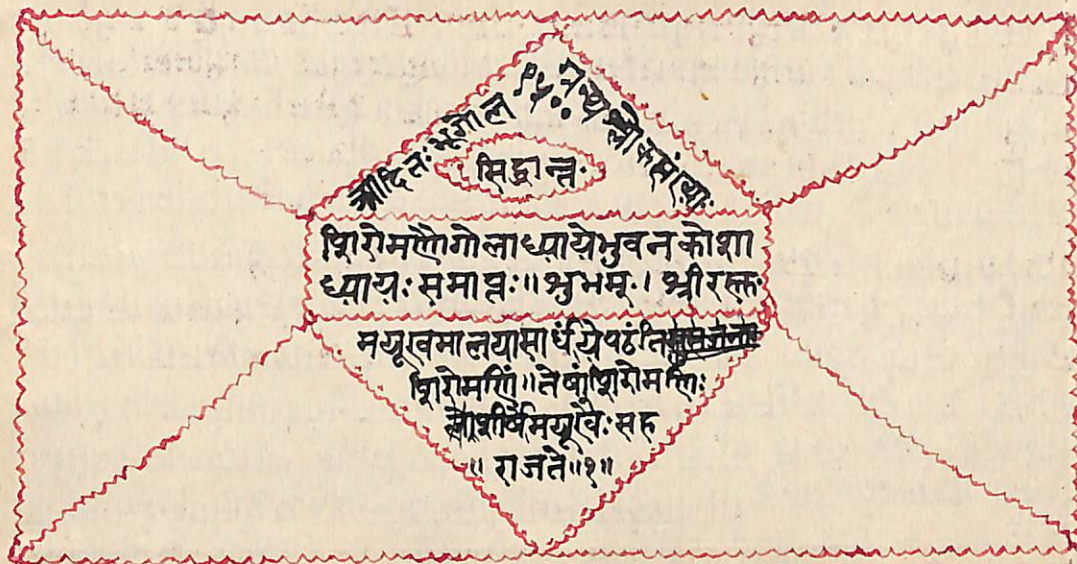 आदितः भूगोल
ग्रन्थश्लोकसंख्याः
सिद्धान्त
शिरोमणौगोलाध्यायेभुवनकोशा
ध्यायः समाप्तः॥ शुभम्। श्रीरस्तु
मयूखमालयासार्धंयेपठंति
शिरोमणिं॥ तेषांशिरोमणिः
मयूखैः सह
॥ राजते॥१॥